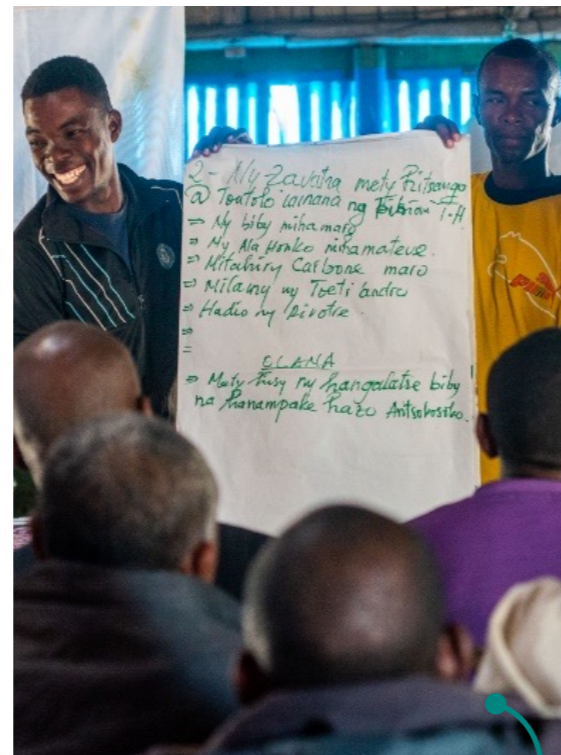 2 - Ny Zavatra mety Ritsango
@ Tontolo iainana ng T-H
⇒ Ny biby mihamaro
⇒ Ny Ala Honko mihamateve.
⇒ Mitahiry Carbone maro
⇒ Milamy ny Toeti andro
⇒ Hadio ny Rivotre.
⇒
=
OLANA
⇒ Mety tusy ny hangalatse biby
na hanampake hazo Antsokosoko.